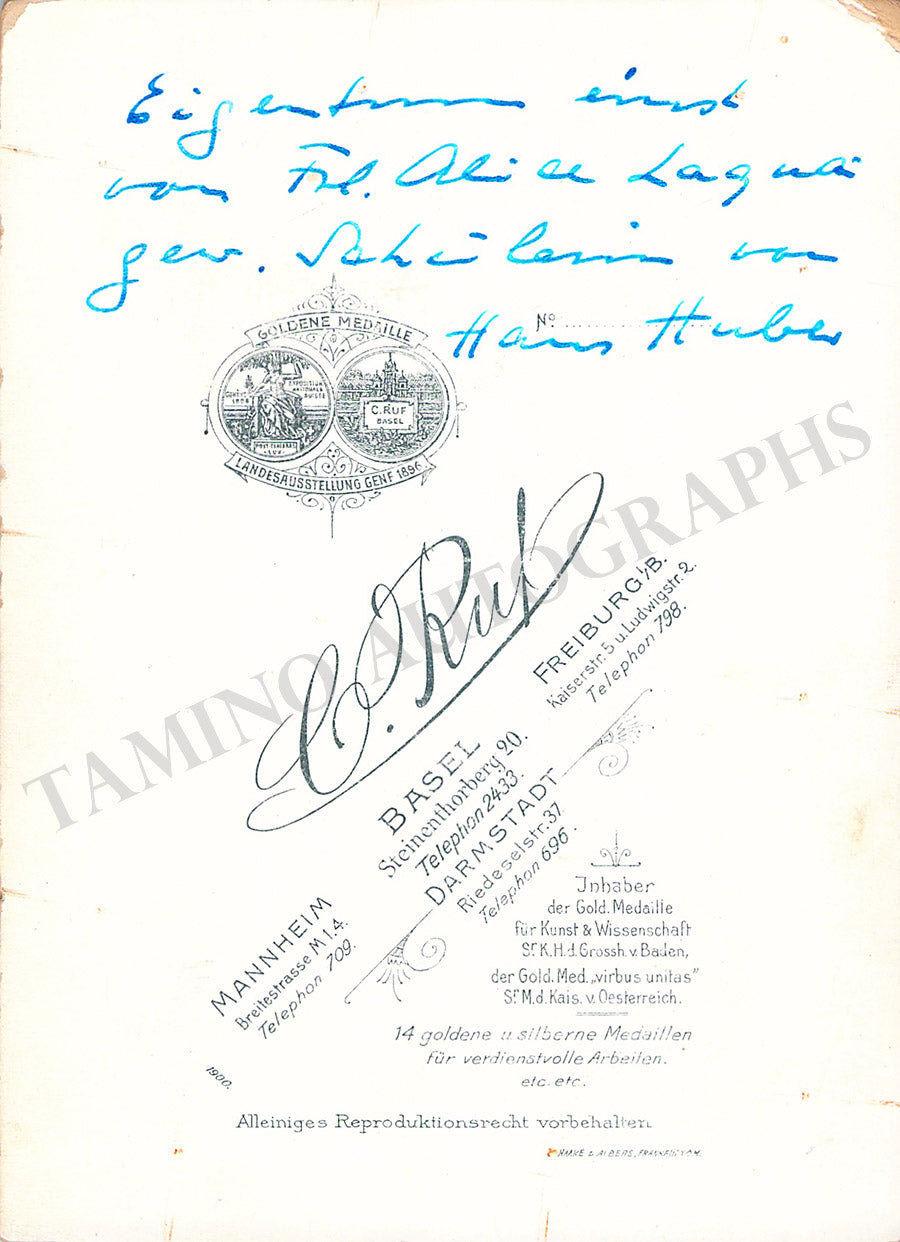 Eigentum einst
von Frl. Alice Laquai
gew. Schülerin von
Hans Huber
No
GOLDENE MEDAILLE
EXPOSITION
NATIONALE
SUISSE
GENÈVE
1896
POST TENEBRAS
LUX
C. RUF
BASEL
LANDESAUSSTELLUNG GENF 1896
TAMINO AUTOGRAPHS
C. Ruf
FREIBURG i/B.
Kaiserstr. 5 u. Ludwigstr. 2.
Telephon 798.
BASEL
Steinenthorberg 20.
Telephon 2433.
DARMSTADT
Riedeselstr. 37.
Telephon 696.
MANNHEIM
Breitestrasse M 1.4.
Telephon 709.
Inhaber
der Gold. Medaille
für Kunst & Wissenschaft
Sr. K. H. d. Grossh. v. Baden,
der Gold. Med. „virbus unitas"
Sr. M. d. Kais. v. Oesterreich.
14 goldene u. silberne Medaillen
für verdienstvolle Arbeiten.
etc. etc.
1900.
Alleiniges Reproduktionsrecht vorbehalten.
HAAKE & ALBERS, FRANKFURT a/M.